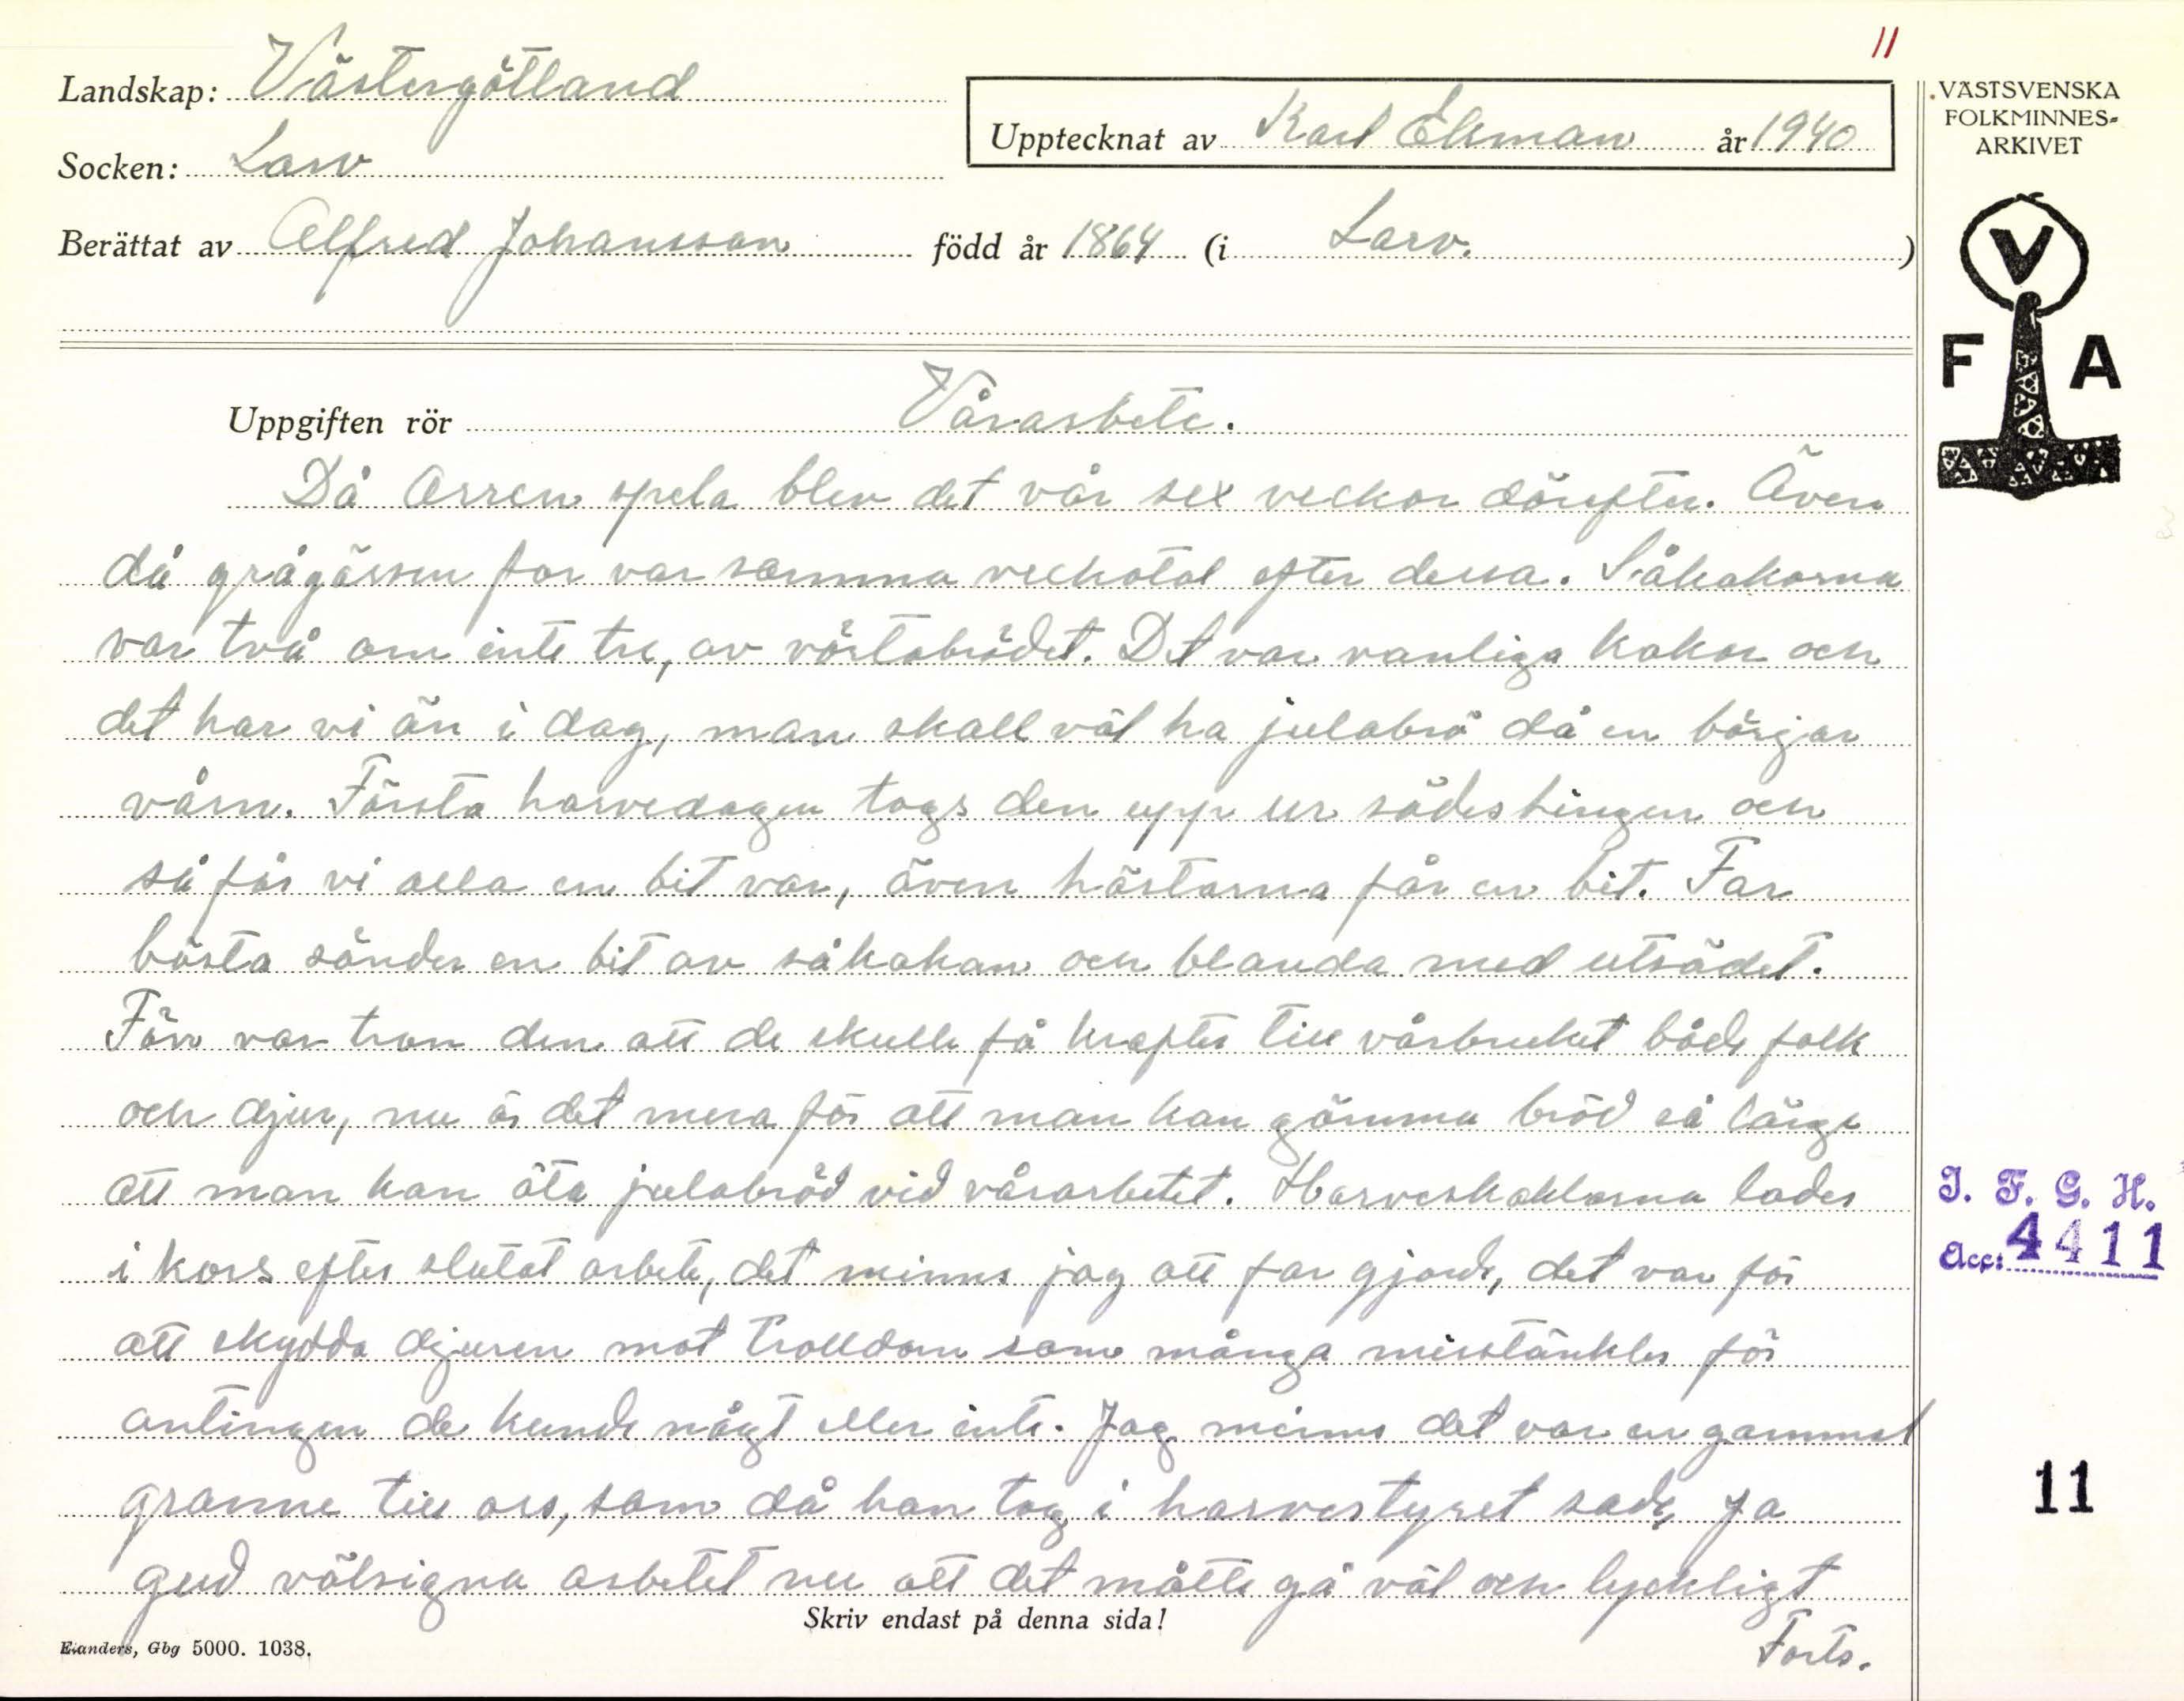 11
Landskap: Västergötland
Upptecknat av Karl Ekman år 1940
VÄSTSVENSKA
FOLKMINNES-
ARKIVET
Socken: Larv
Berättat av Alfred Johansson född år 1864 (i Larv. )
V
F A
Uppgiften rör Vårarbete.
Då Orren spela blev det vår sex veckor därefter. Även
då grågässen for var samma veckotal efter dessa. Såkakorna
var två om inte tre, av vörtabrödet. Det var vanliga kakor och
det har vi än i dag, man skall väl ha julabrö då en börjar
vårn. Första harvedagen togs den upp ur sädesbingen och
så får vi alla en bit var, även hästarna får en bit. Far
bösta sönder en bit av såkakan och blanda med utsädet.
Förr var tron den att de skulle få krafter till vårbruket både folk
och djur, nu är det mera för att man kan gömma bröd så länge
att man kan äta julabröd vid vårarbetet. Harveskaklarna lades
i kors efter slutat arbete, det minns jag att far gjorde, det var för
att skydda djuren mot trolldom som många misstänktes för
antingen de kunde någt eller inte. Jag minns det var en gammal
granne till oss, som då han tog i harvestyret sade, Ja
gud välsigna arbetet nu att det måtte gå väl och lyckligt
Forts.
Skriv endast på denna sida!
Elanders, Gbg 5000. 1038.
I. F. G. H.
Acc: 4411
11